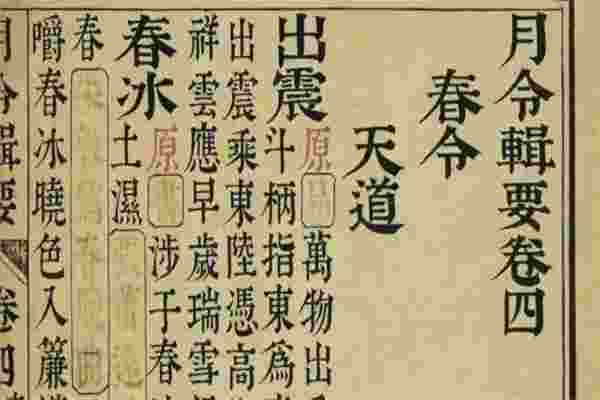 月令輯要卷四
春令
天道
出震
原易萬物出
斗柄指東爲
出震乘東陸憑高
祥雲應早歲瑞雪
春冰
原書涉于春
土濕
春
嚼春冰曉色入簾
月令輯要 卷四